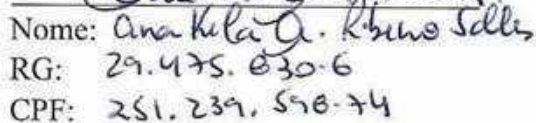 Nome: Ana Keila A. Ribeiro Salles
RG: 29.475.830-6
CPF: 251.239.598-74